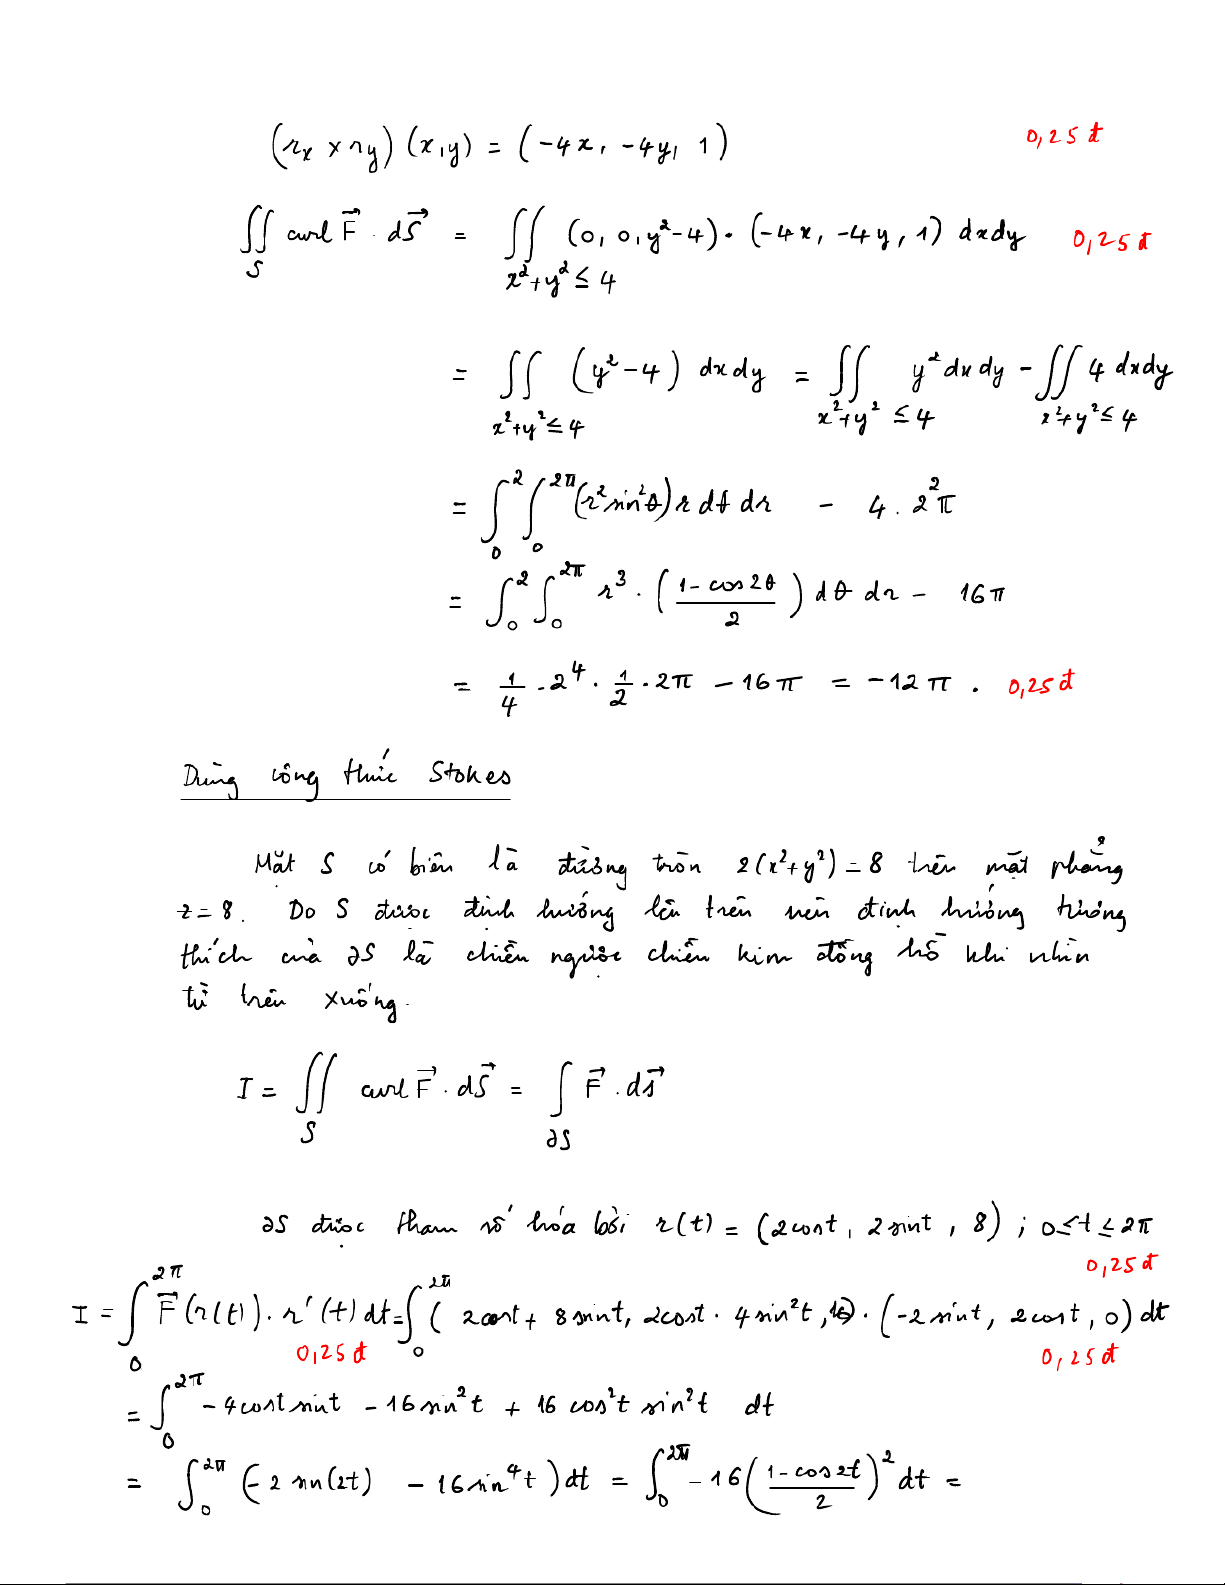 (r_x × r_y)(x,y) = (-4x, -4y, 1) 0,25 đ
∬_S curl F⃗ · dS⃗ = ∬_{x²+y²≤4} (0, 0, y²-4) · (-4x, -4y, 1) dxdy 0,25 đ
= ∬_{x²+y²≤4} (y²-4) dxdy = ∬_{x²+y²≤4} y² dxdy - ∬_{x²+y²≤4} 4 dxdy
= ∫_0^2 ∫_0^{2π} (r² sin²θ) r dθ dr - 4 . 2² π
= ∫_0^2 ∫_0^{2π} r³ · ((1 - cos 2θ)/2) dθ dr - 16π
= 1/4 · 2⁴ · 1/2 · 2π - 16π = -12π . 0,25 đ
Dùng công thức Stokes
Mặt S có biên là đường tròn 2(x²+y²) = 8 trên mặt phẳng
z = 8. Do S được định hướng lên trên nên định hướng tương
thích của ∂S là chiều ngược chiều kim đồng hồ khi nhìn
từ trên xuống.
I = ∬_S curl F⃗ · dS⃗ = ∫_{∂S} F⃗ · ds⃗
∂S được tham số hóa bởi r(t) = (2cost, 2sint, 8) ; 0≤t≤2π
0,25 đ
I = ∫_0^{2π} F⃗(r(t)) · r'(t) dt = ∫_0^{2π} (2cost + 8sint, 2cost · 4sin²t, 16) · (-2sint, 2cost, 0) dt
0,25 đ 0,25 đ
= ∫_0^{2π} -4cost sint - 16sin²t + 16cos²t sin²t dt
= ∫_0^{2π} (-2 sin(2t) - 16sin⁴t) dt = ∫_0^{2π} -16((1 - cos2t)/2)² dt =